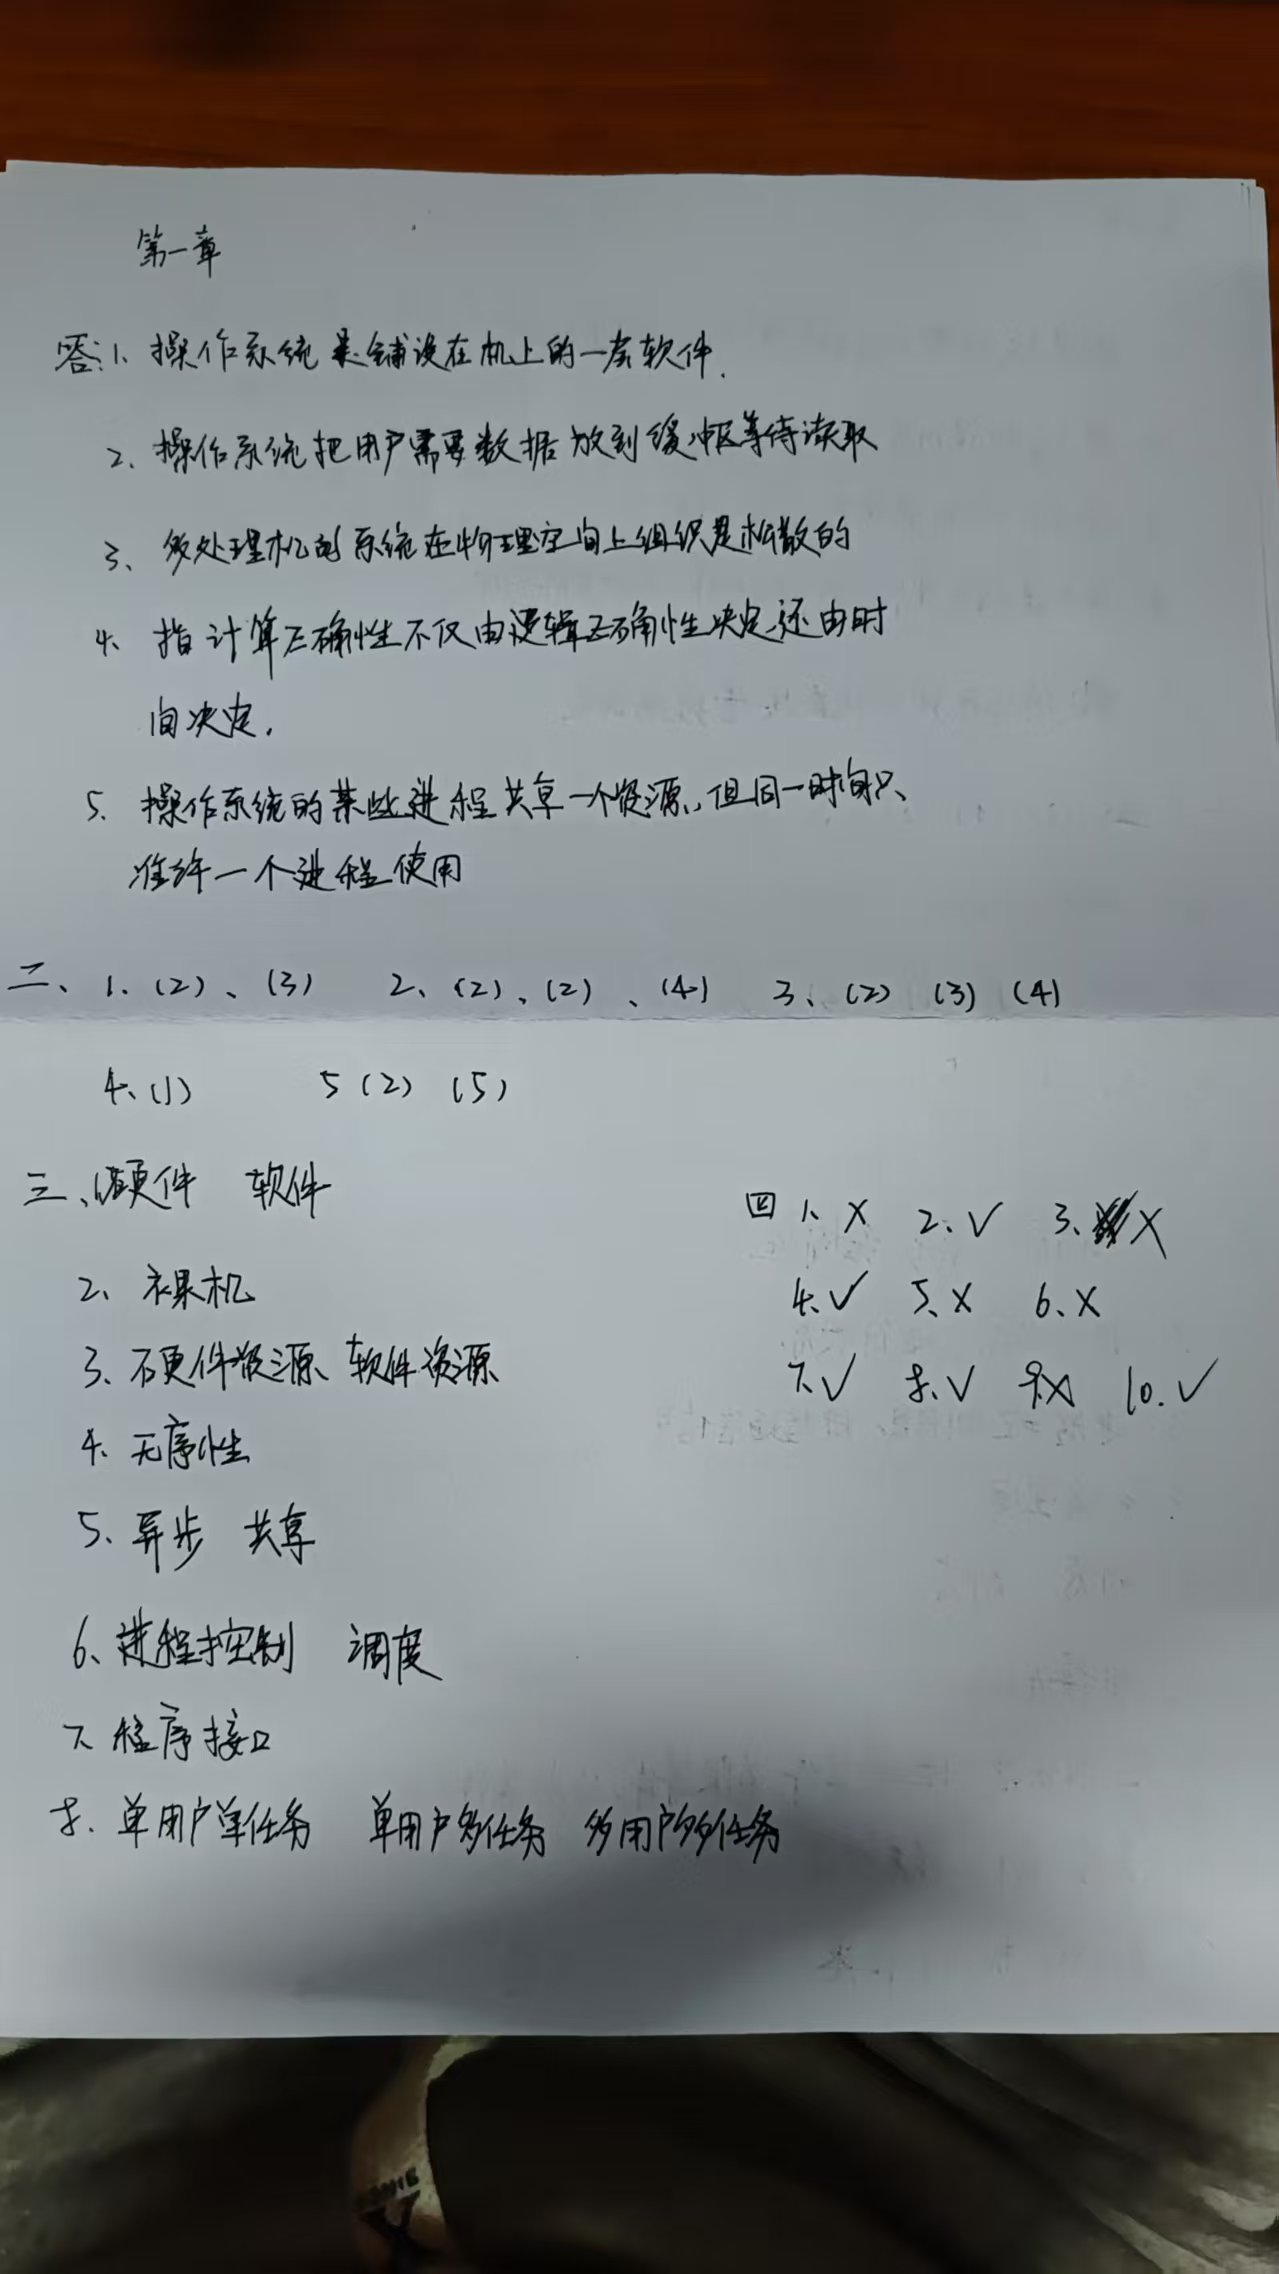 第一章
答:1、操作系统是铺设在机上的一层软件.
2、操作系统把用户需要数据放到缓冲区等待读取
3、多处理机的系统在物理空间上组织是松散的
4、指计算正确性不仅由逻辑正确性决定还由时
间决定.
5、操作系统的某些进程共享一个资源,但同一时间只
准许一个进程使用
二、1、(2)、(3) 2、(2)、(2)、(4) 3、(2) (3) (4)
4、(1) 5 (2) (5)
三、1硬件 软件
2、裸机
3、硬件资源、软件资源
4、无序性
5、异步 共享
6、进程控制 调度
7、程序接口
8、单用户单任务 单用户多任务 多用户多任务
四 1、X 2、√ 3、X
4、√ 5、X 6、X
7、√ 8、√ 9、X 10.√